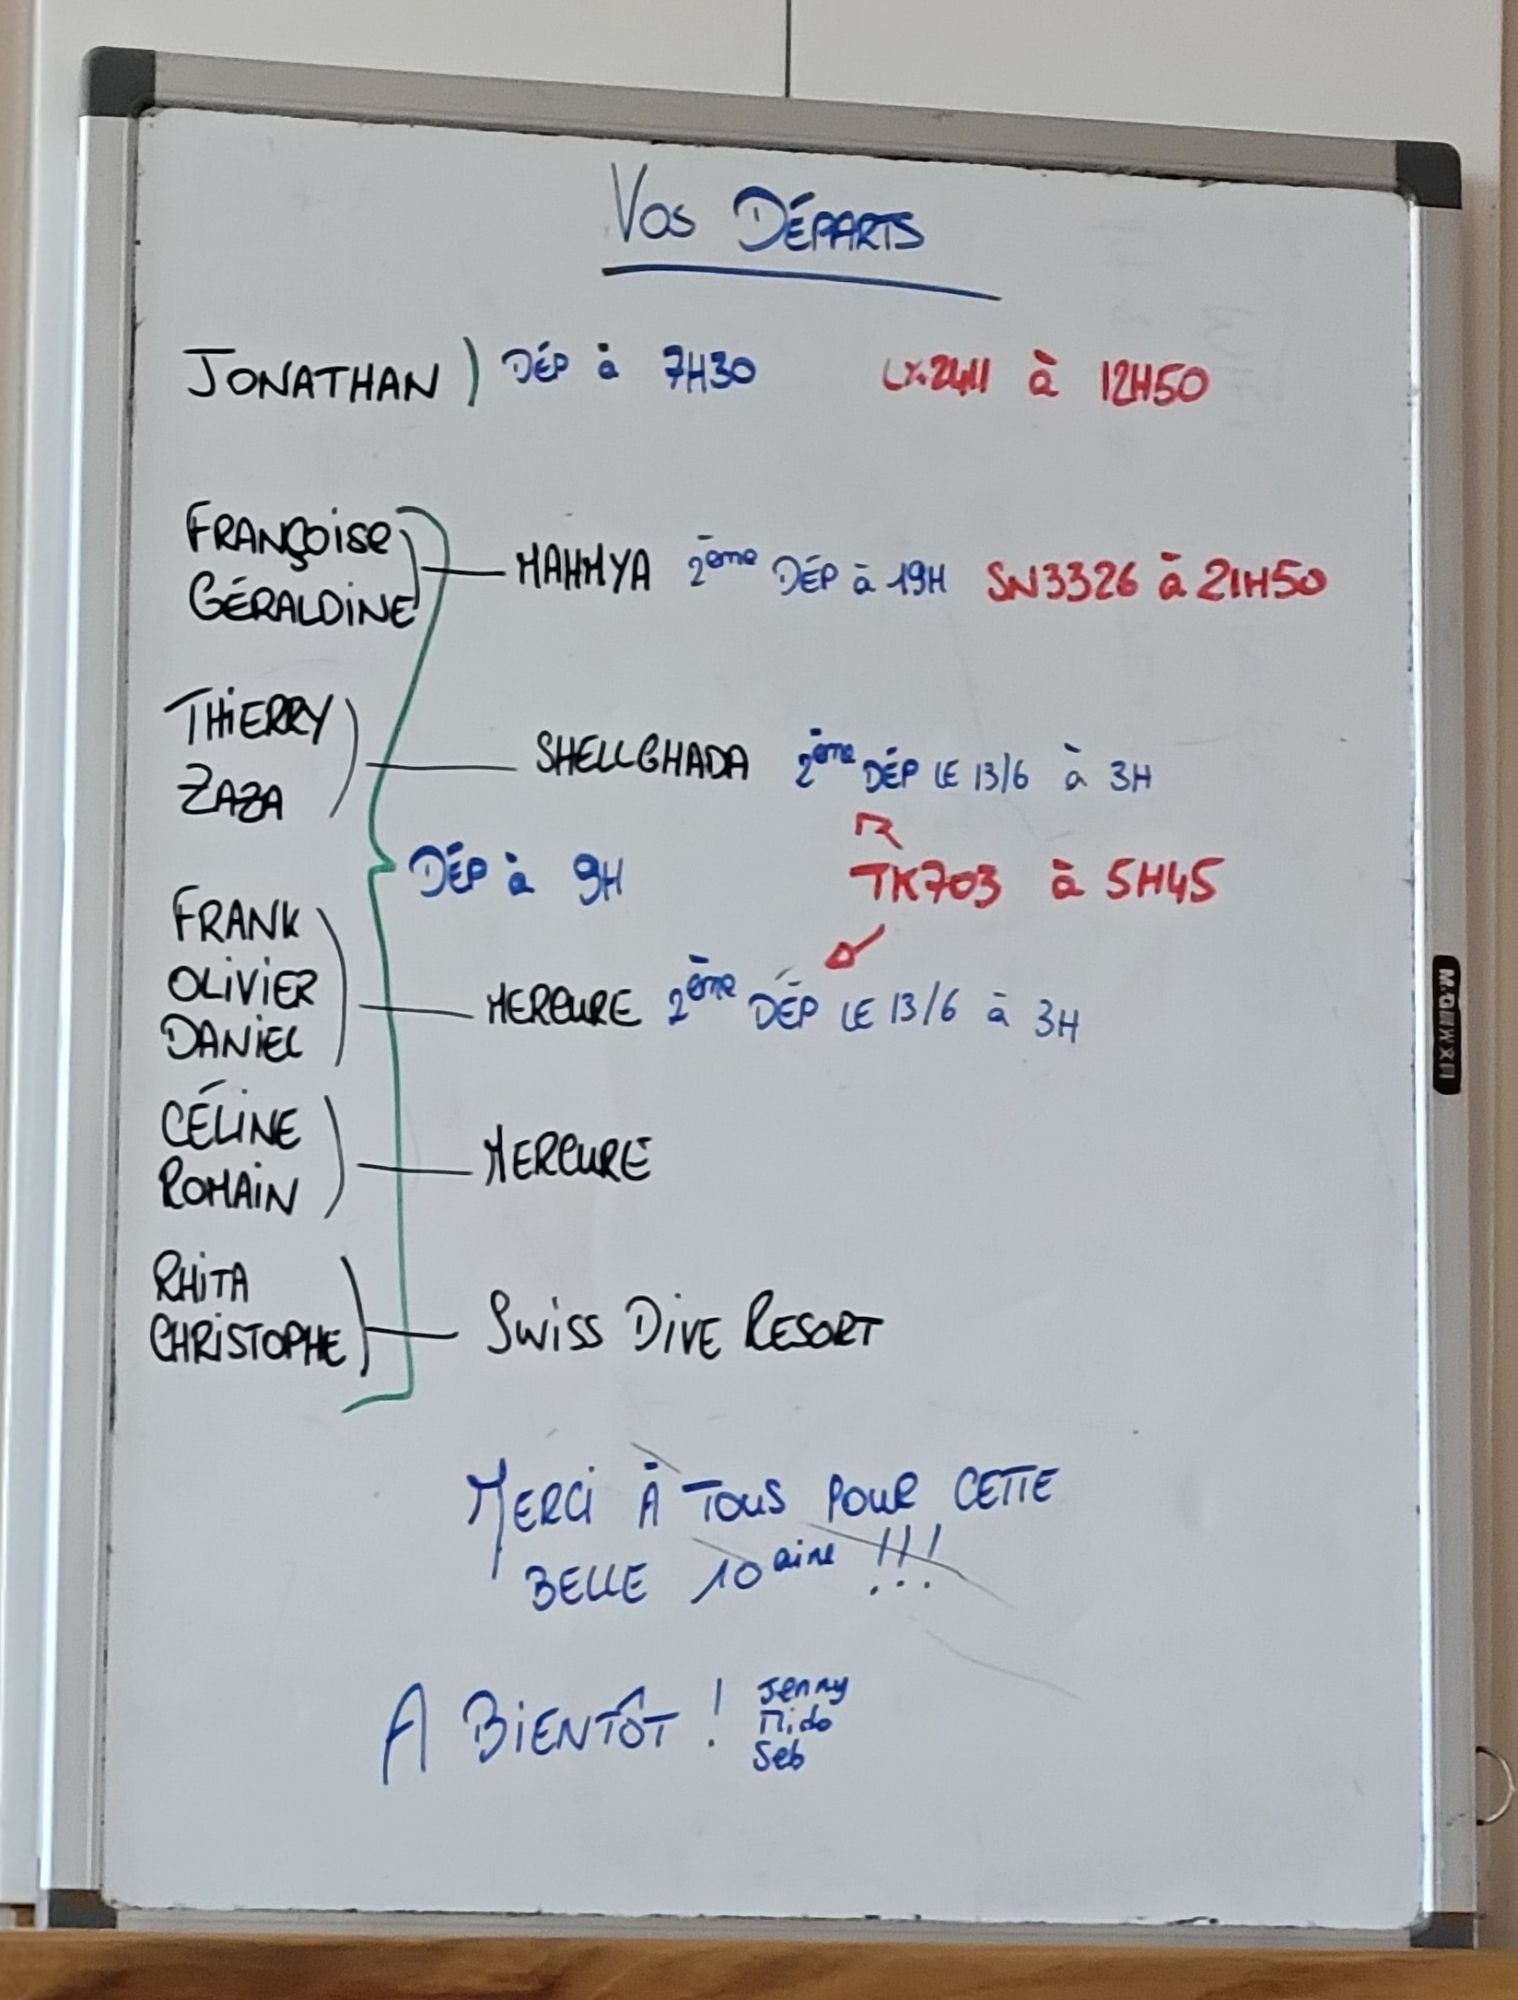 VOS DÉPARTS
JONATHAN ) DÉP à 7H30 LX2411 à 12H50
FRANÇOISE
GÉRALDINE
MAHMYA 2ème DÉP à 19H SN3326 à 21H50
THIERRY
ZAZA
SHELLGHADA 2ème DÉP LE 13/6 à 3H
DÉP à 9H TK703 à 5H45
FRANK
OLIVIER
DANIEL
MERCURE 2ème DÉP LE 13/6 à 3H
CÉLINE
ROMAIN
MERCURE
RHITA
CHRISTOPHE
SWISS DIVE RESORT
MERCI À TOUS POUR CETTE
BELLE 10aine !!!
A BIENTÔT !
Jenny
Mido
Seb